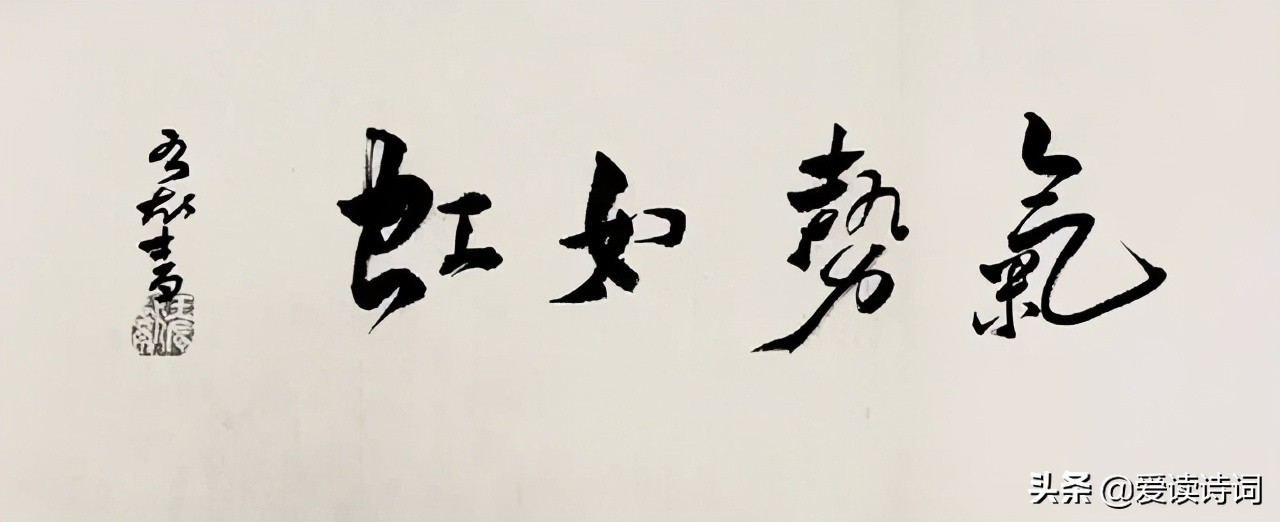 氣勢如虹
头条 @爱读诗词